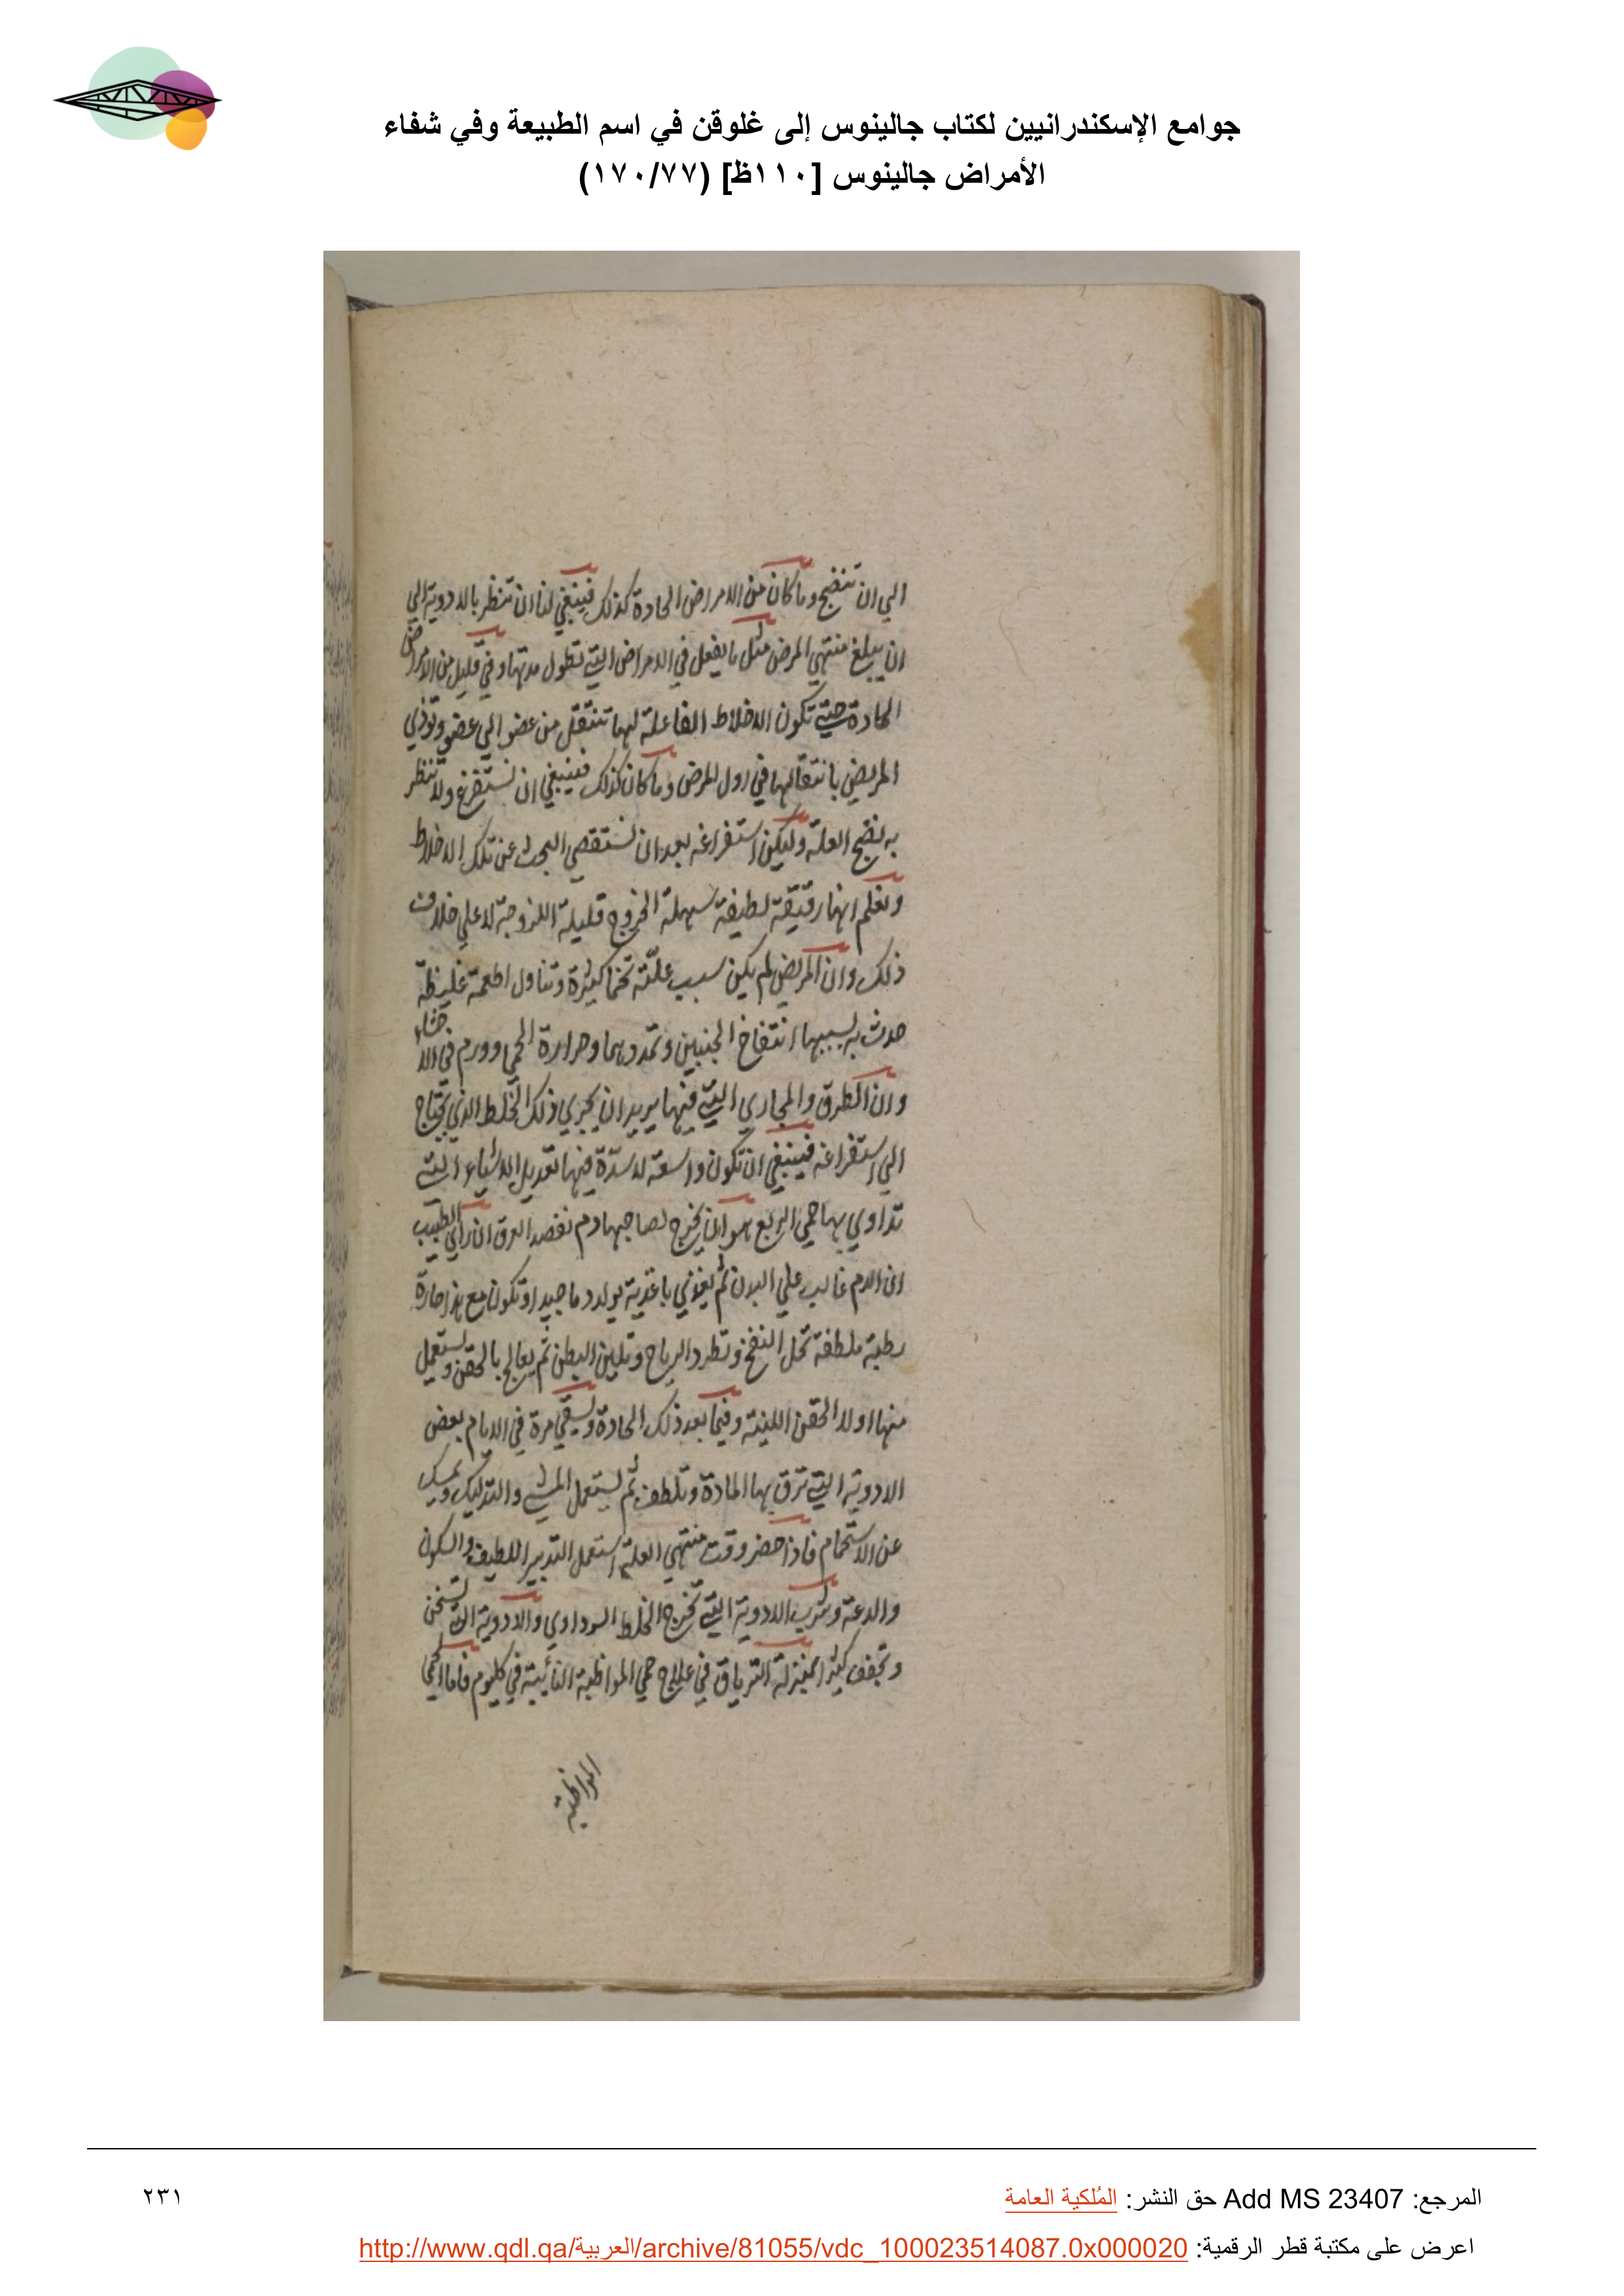 جوامع الإسكندرانيين لكتاب جالينوس إلى غلوقن في اسم الطبيعة وفي شفاء
الأمراض جالينوس [١١٠ظ] (١٧٠/٧٧)
الي ان تنضج وما كان من الامراض الحادة كذلك فينبغي لنا ان تنظر بالادوية الي
ان يبلغ منتهي المرض مثل ما يفعل في الامراض التي تطول مدتها وفي قليل من الامراض
الحادة حتي تكون الاخلاط الفاعلة لها تنتقل من عضو الي عضو وتوذي
المريض بانتقالها في اول المرض وما كان كذلك فينبغي ان نستفرغ ولا تنظر
به نضج العلة وليكن استفراغه بعد ان نستقصي البحث عن تلك الاخلاط
ونعلم انها رقيقة لطيفة سهلة الخروج قليلة اللزوجة لا علي خلاف
ذلك وان المريض لم يكن سبب علته تخما كثيرة وتناول اطعمة غليظة
حدث به بسببها انتفاخ الجنبين وتمددهما وحرارة الحمي وورم في الاحشاء
وان الطرق والمجاري التي فيها يريد ان يجري ذلك الخلط الذي يحتاج
الي استفراغه فينبغي ان تكون واسعة لا سدة فيها تعديل الاشياء التي
تداوي بها حمي الربع هو ان يخرج لصاحبها دم نفصد العرق ان راي الطبيب
ان الدم غالب علي البدن ثم يغذي باغذية يولد دما جيدا وتكون مع هذا حارة
رطبة ملطفة تحل النفخ وتطرد الرياح وتلين البطن ثم يعالج بالحقن ويستعمل
منها اولا الحقن اللينة وفيما بعد ذلك الحادة ويسقي مرة في الايام بعض
الادوية التي ترق بها المادة وتلطف ثم يستعمل المشي والتدليك ويمسك
عن الاستحمام فاذا حضر وقت منتهي العلة استعمل التدبير اللطيف والسكون
والدعة وشرب الادوية التي تخرج الخلط السوداوي والادوية التي تسخن
وتجفف كثيرا بمنزلة الترياق في علاج حمي المواظبة النائبة في كل يوم فاما الحمي
المواظبة
المرجع: Add MS 23407 حق النشر: المُلكية العامة
٢٣١
اعرض على مكتبة قطر الرقمية: http://www.qdl.qa/العربية/archive/81055/vdc_100023514087.0x000020